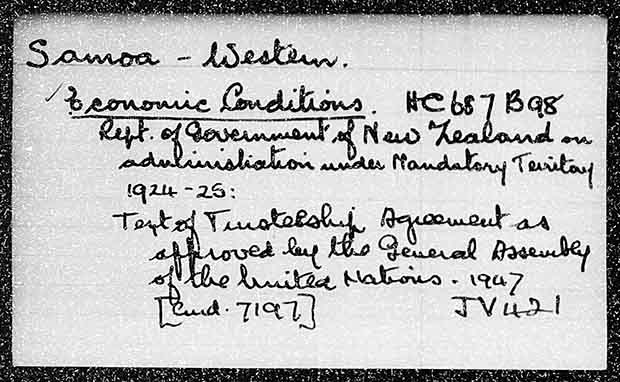 Samoa - Western.
Economic Conditions. HC687 B98
Rept. of Government of New Zealand on
administration under Mandatory Territory
1924-25:
Text of Trusteeship Agreement as
approved by the General Assembly
of the United Nations. 1947
[Cmd. 7197] JV421